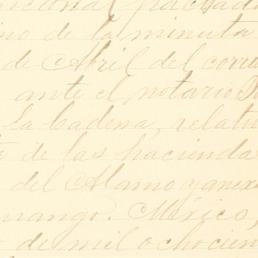 no de la minuta
de Abril del corrie
ante el notario D
la Cadena, relati
de las hacienda
del Alamo y anex
rango. México,
de mil ochocien